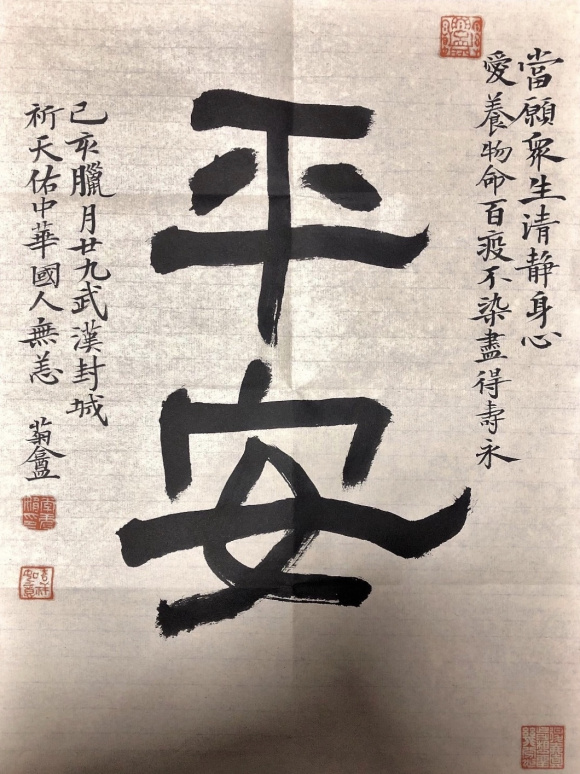 當願眾生清靜身心
愛養物命百疫不染盡得壽永
平安
己亥臘月廿九武漢封城
祈天佑中華國人無恙